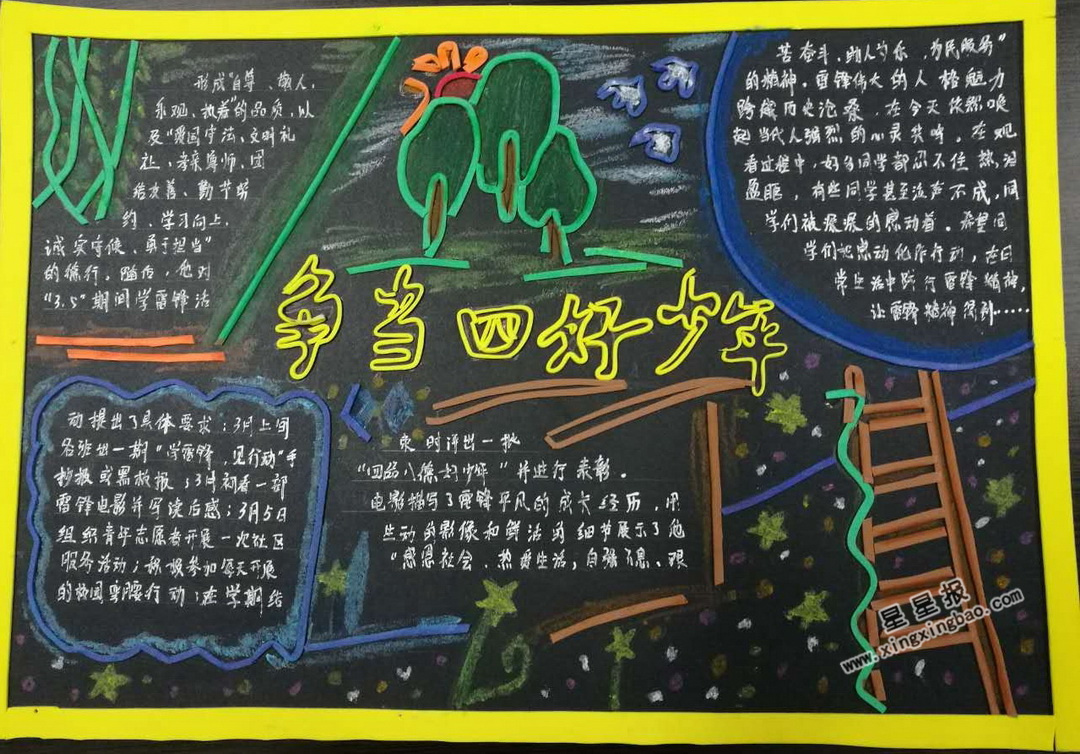 形成"自尊、
乐观、执着"的品质,以
及"爱国守法、文明礼
礼、孝亲尊师、团
结友善、勤
约、学习向上,
诚实守信、勇于担当"
的德行。随后,他对
"3.5"期间学雷锋活
动提出了具体要求:3月上间
各班出一期"学雷锋,见行动"手
抄报或黑板报;3月初看一部
雷锋电影并写读后感;3月5日
组织青年志愿者开展一次社区
服务活动;积极参加每天开展
的校园弯腰行动;在学期结
束时评出一批
"四品八德好少年"并进行表彰。
电影描写了雷锋平凡的成长经历,用
生动的影像和鲜活的细节展示了他
"感恩社会、热爱生活,自强不息、艰
苦奋斗、助人为乐、为民服务"
的精神。雷锋伟大的人格魅力
跨越历史沧桑,在今天依然唤
起当代人强烈的心灵共鸣。在观
看过程中,好多同学都忍不住热泪
盈眶,有些同学甚至泣声不成,同
学们被深深的感动着。希望同
学们把感动化作行动,在日
常生活中践行雷锋精神,
让雷锋精神……
争当四好少年
星星报
www.xingxingbao.com